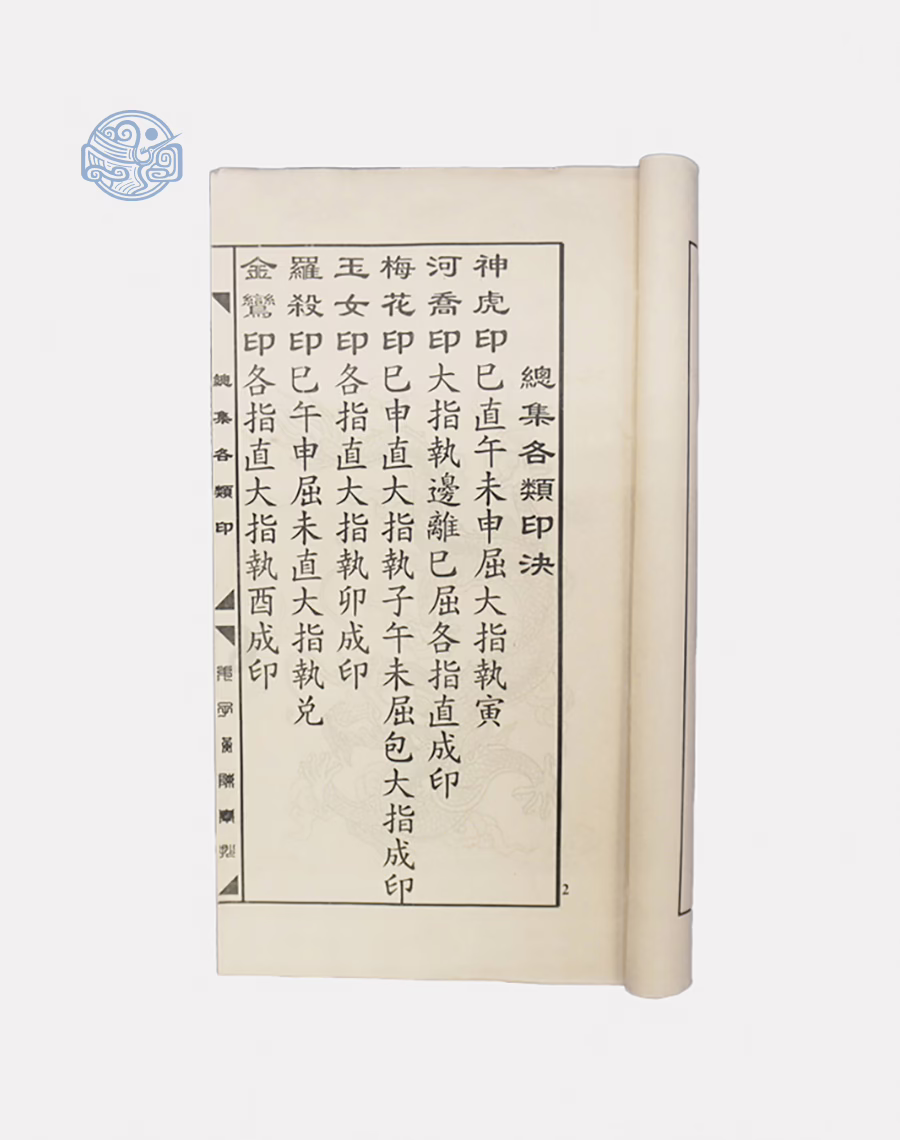 總集各類印決
神虎印巳直午未申屈大指執寅
河喬印大指執邊離巳屈各指直成印
梅花印巳申直大指執子午未屈包大指成印
玉女印各指直大指執卯成印
羅殺印巳午申屈未直大指執兑
金鸞印各指直大指執酉成印
總集各類印
2